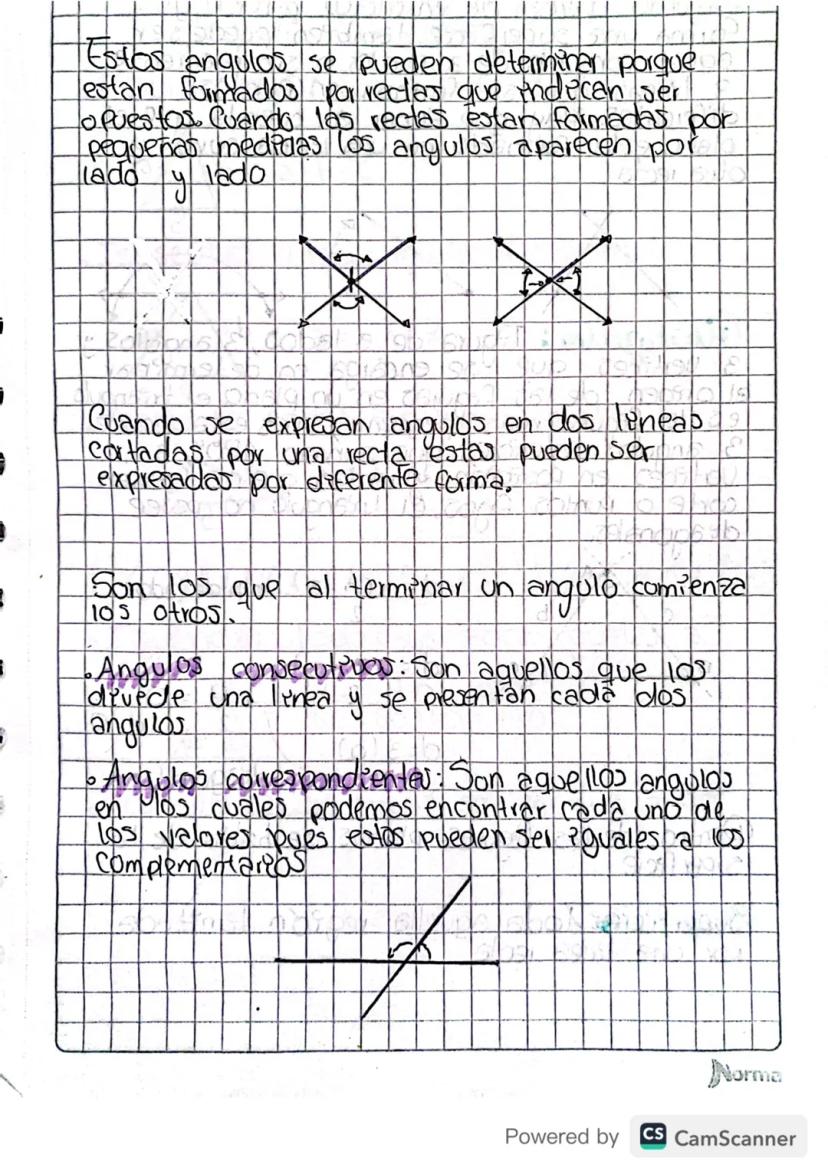 Estos angulos se pueden determinar porque
estan formados por rectas que indican ser
opuestos. Cuando las rectas estan formadas por
pequeñas medidas los angulos aparecen por
lado y lado
Cuando se expresan angulos en dos lineas
cortadas por una recta estas pueden ser
expresadas por diferente forma.
Son los que al terminar un angulo comienza
los otros.
. Angulos consecutivos: Son aquellos que los
divide una linea y se presentan cada dos
angulos
• Angulos correspondientes: Son aquellos angulos
en los cuales podemos encontrar cada uno de
los valores pues estos pueden ser iguales a los
complementarios
Norma
Powered by CS CamScanner